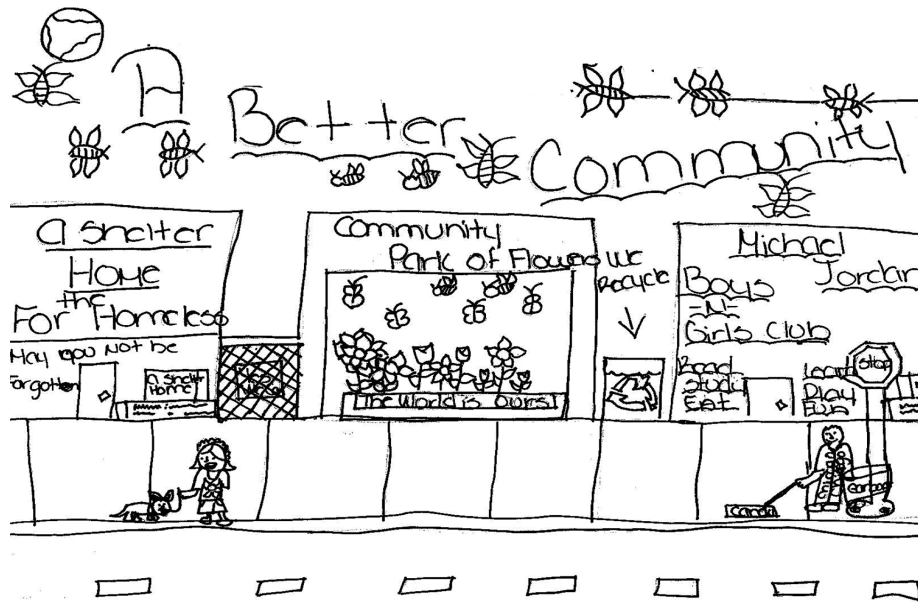 A
Better
Community
A Shelter
Home
the
For Homeless
May you not be
Forgotten
A Shelter
Home
Community
Park of Flowers
The World is Ours!
We
Recycle
Michael
Jordan
Boys
-N-
Girls Club
Read
Studi
Eat
Learn
Play
Fun
Stop
Garbage
Canda